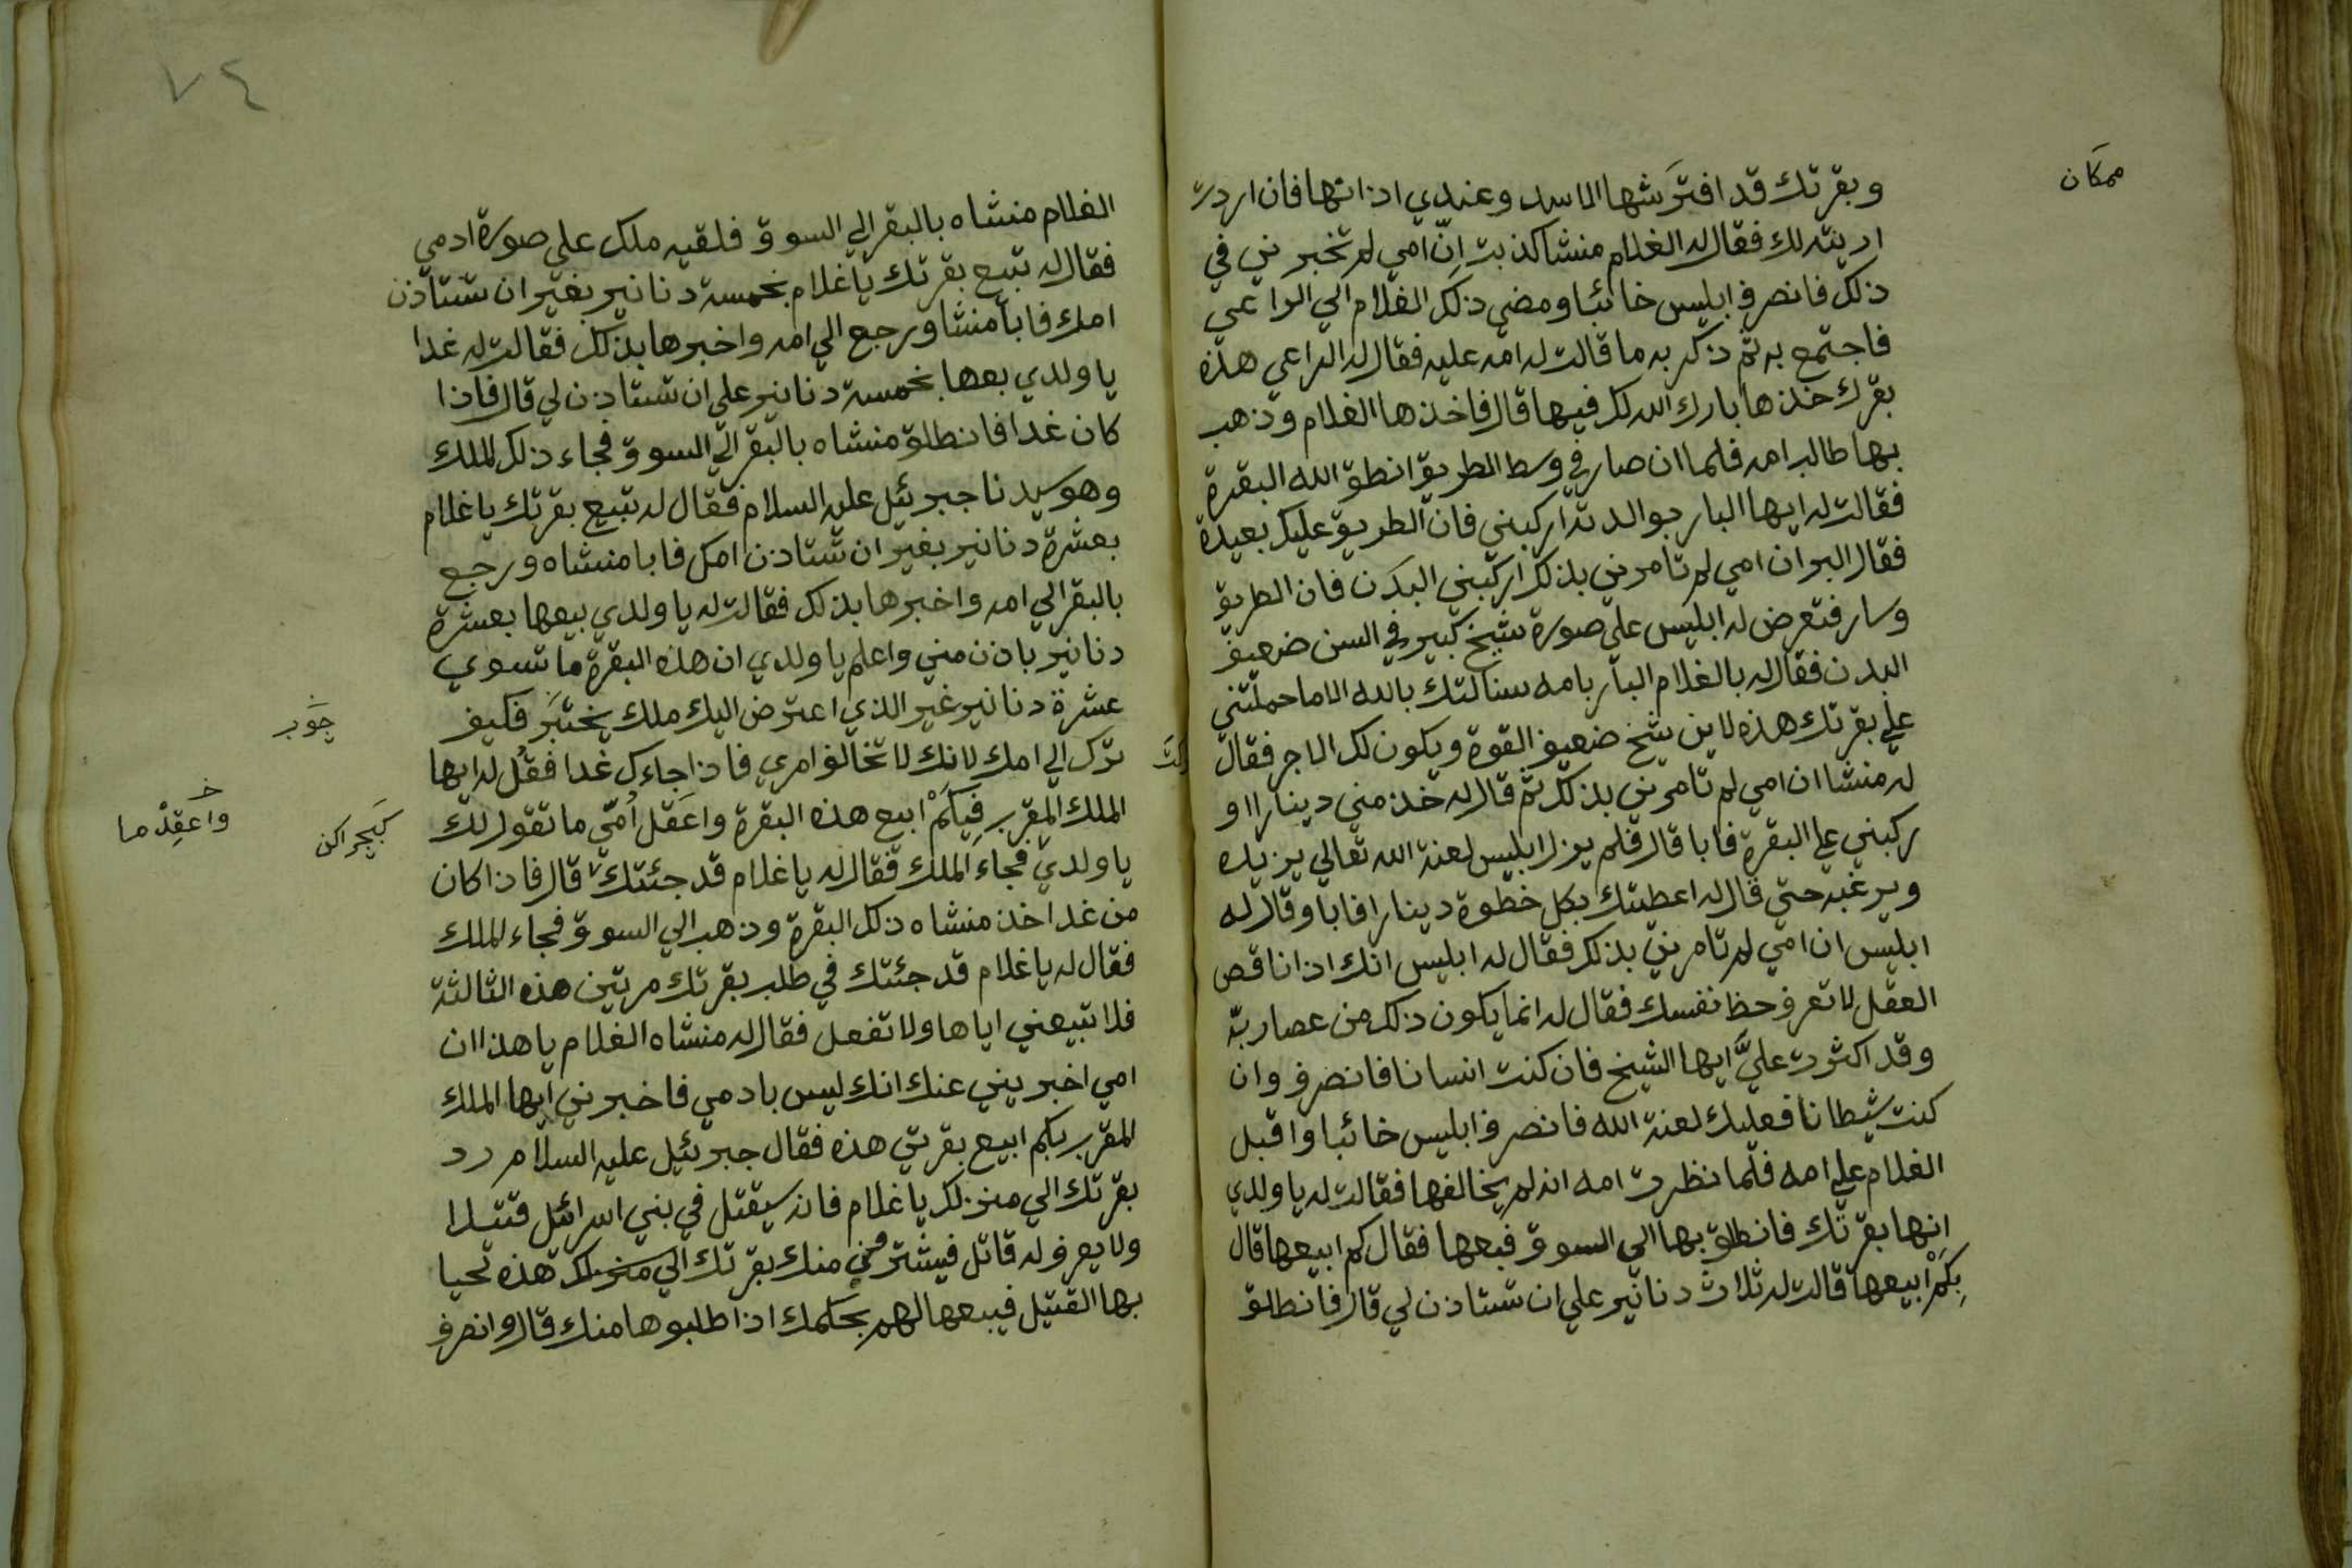 ممكان
وبقرتك قد افترشها الاسد وعندي اذاتها فان اردت
اريته لك فقال له الغلام منشا كذبت اِنّ امي لم تخبرني في
ذلك فانصرف ابليس خائبا ومضي ذلك الغلام الي الراعي
فاجتمع به ثم ذكر به ما قالت له امه عليه فقال له الراعي هذه
بقرك خذها بارك الله لك فيها قال فاخذها الغلام وذهب
بها طالب امه فلما ان صار في وسط الطريق انطق الله البقرة
فقالت له ايها البار بوالدته اركبني فان الطريق عليك بعيدة
فقال البر ان امي لم تامرني بذلك اركبني البدن فان الطريق
وسار فتعرض له ابليس علي صورة شيخ كبير في السن ضعيف
البدن فقال له بالغلام البار بامه سئالتك بالله الا ما حملتني
علي بقرتك هذه لاين شيخ ضعيف القوة ويكون لك الاجر فقال
له منشا ان امي لم تامرني بذلك ثم قال له خذ مني دينارا او
ركبني علي البقرة فابا قال فلم يزل ابليس لعنة الله تعالي يزيده
ويرغبه حتي قال له اعطيتك بكل خطوة دينارا فابا وقال له
ابليس ان امي لم تامرني بذلك فقال له ابليس انك اذا ناقص
العقل لا تعرف حظ نفسك فقال له انما يكون ذلك من عصا ربّه
وقد اكثرت عليَّ ايها الشيخ فان كنت انسانا فانصرف وان
كنت شيطانا فعليك لعنة الله فانصرف ابليس خائبا واقبل
الغلام علي امه فلما نظرت امه انه لم يخالفها فقالت له يا ولدي
انها بقرتك فانطلق بها الي السوق فبعها فقال كم ابيعها قال
بِكَمْ ابيعها قالت له ثلاث دنانير علي ان تستاذن لي قال فانطلق
٧٤
الغلام منشاه بالبقر الي السوق فلقيه ملك علي صورة ادمي
فقال له تبيع بقرتك يا غلام بخمسة دنانير بغير ان تستاذن
امك فابا منشا ورجع الي امه واخبرها بذلك فقالت له غدا
يا ولدي بعها بخمسة دنانير علي ان تستاذن لي قال فاذا
كان غدا فانطلق منشاه بالبقر الي السوق فجاء ذلك الملك
وهو سيدنا جبرئيل عليه السلام فقال له تبيع بقرتك يا غلام
بعشرة دنانير بغير ان تستاذن امك فابا منشاه ورجع
بالبقر الي امه واخبرها بذلك فقالت له يا ولدي بيعها بعشرة
دنانير باذن مني واعلم يا ولدي ان هذه البقرة ما تسوي
عشرة دنانير غير الذي اعترض اليك ملك يختبَر فكيف
جَوب
برّك الي امك لانك لا تخالف امري فاذا جاءك غدا فقُل له ايها
الملك المقرب فِبكَمْ ابيع هذه البقرة واعَقل اُمّي ما تقول لك
واعقِدْ ما
يا ولدي فجاء الملك فقال له يا غلام قد جئتك قال فاذا كان
من غد اخذ منشاه ذلك البقرة وذهب الي السوق فجاء الملك
فقال له يا غلام قد جئتك في طلب بقرتك مرتين هذه الثالثة
فلا تبيعني اياها ولا تفعل فقال له منشاه الغلام يا هذا ان
امي اخبرتني عنك انك ليس بادمي فاخبرني ايها الملك
المقرب بكم ابيع بقرتي هذه فقال جبرئيل عليه السلام رد
بقرتك الي منزلك يا غلام فانه سيقتل في بني اسرائيل قتيلا
ولا يعرف له قاتل فيشتر مني منك بقرتك الي منزلك هذه تحيا
بها القتيل فيبعها لهم بحكمك اذا طلبوها منك قال وانصرف